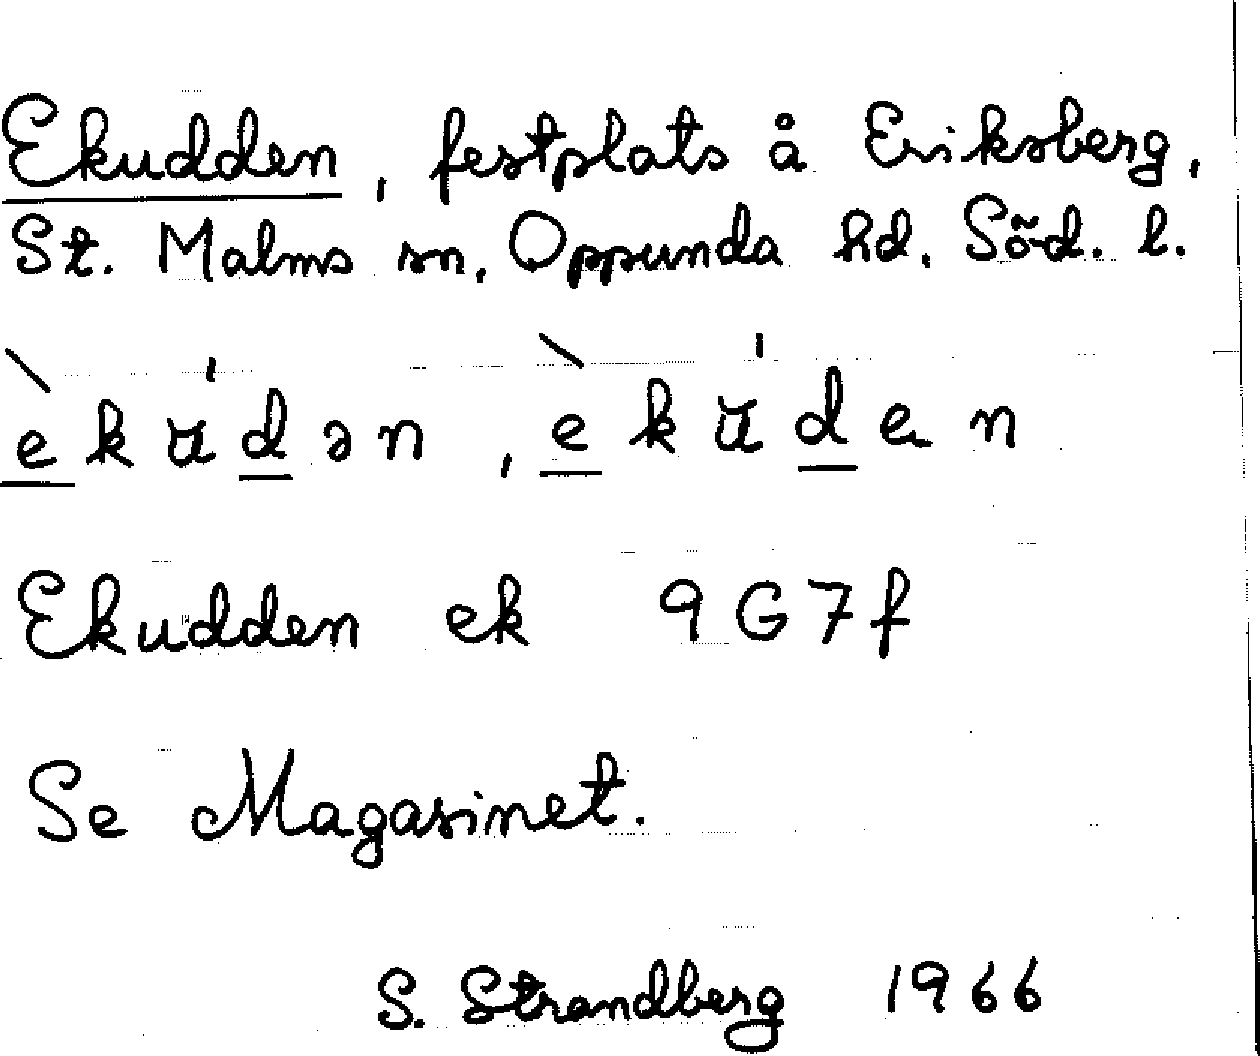 Ekudden, festplats å Eriksberg,
St. Malms sn, Oppunda hd, Söd. l.
èkúdən, èkúden
Ekudden ek 9G7f
Se Magasinet.
S. Strandberg 1966